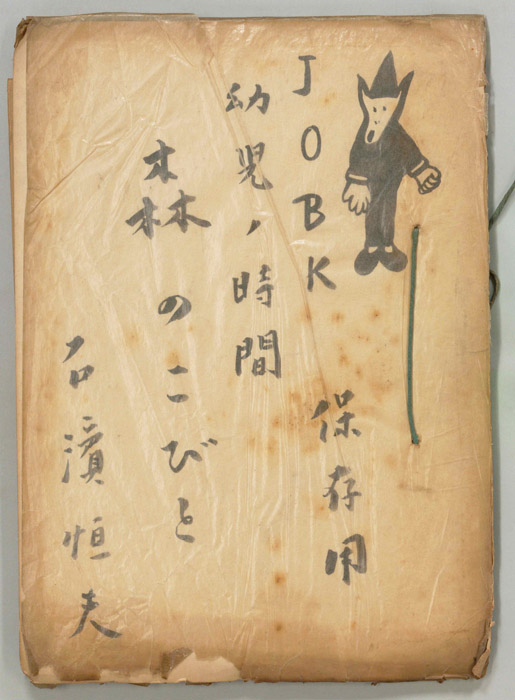 JOBK
保存用
幼児ノ時間
森のこびと
石濱恒夫